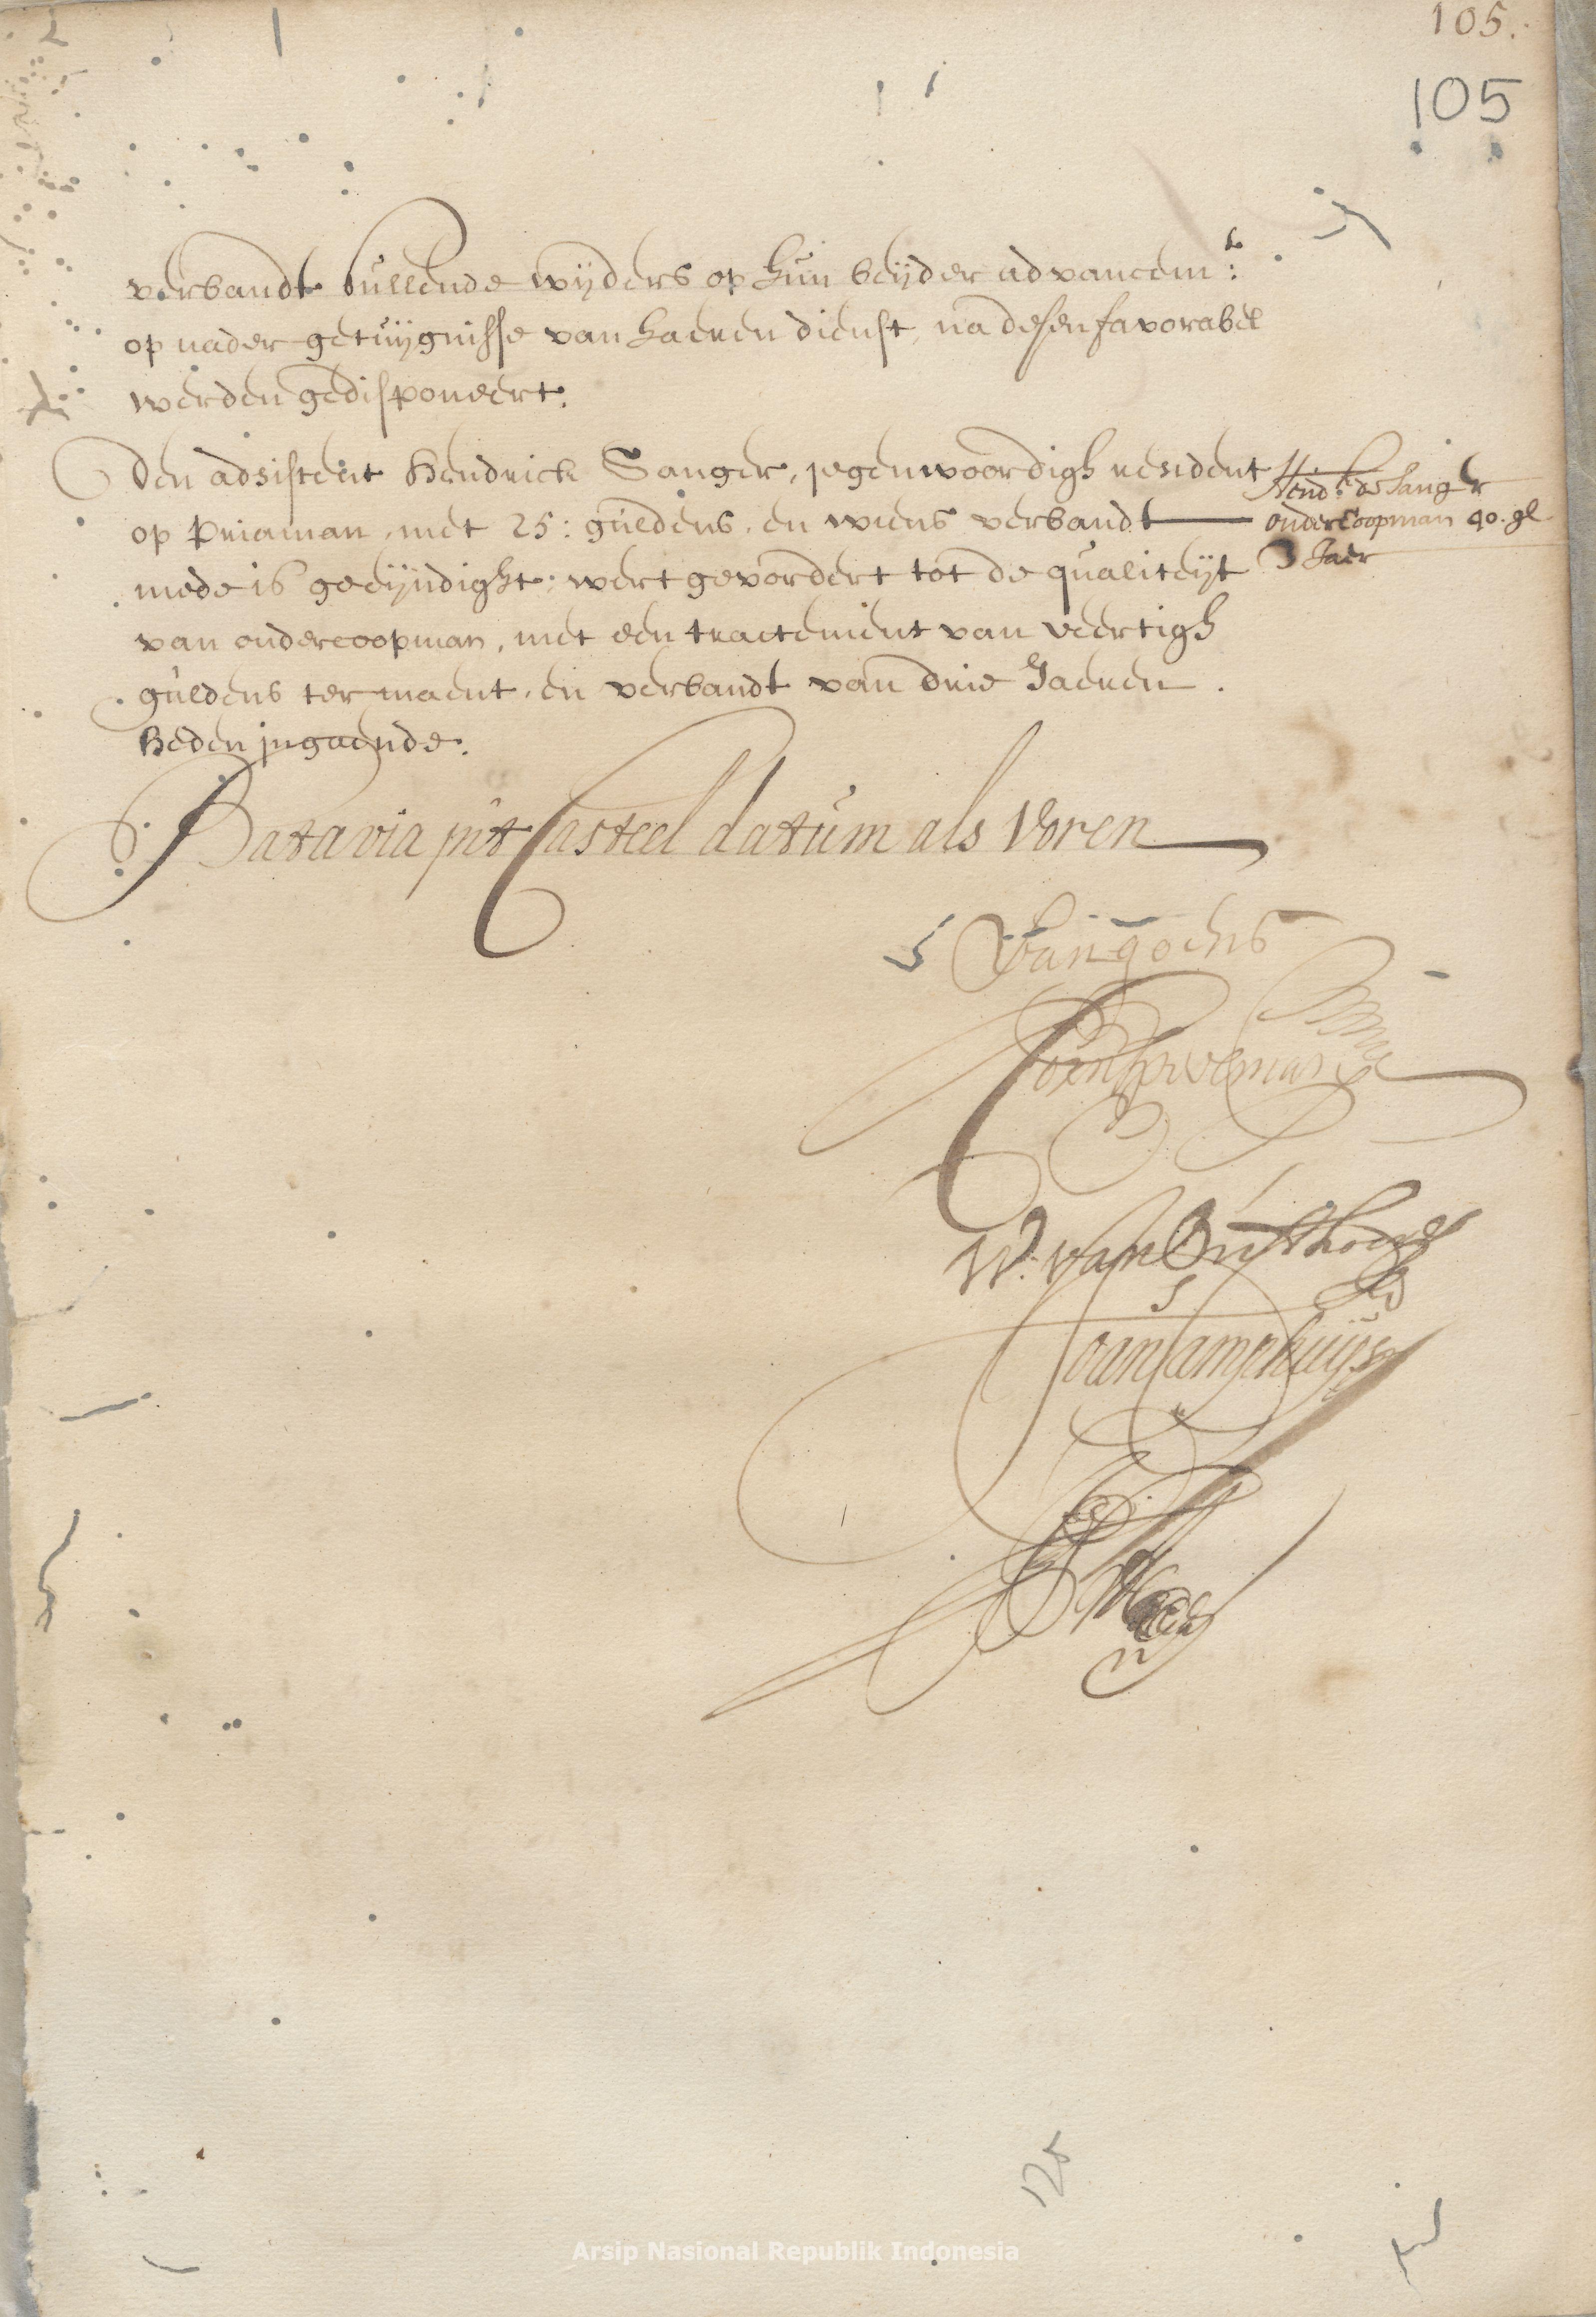 105.
105
verbandt sullende wijders op hun beijder advancem:t
op nader getuijgnisse van haeren dienst, na desen favorabel
werden gedisponeert.
Den adsistent Hendrick Sanger, jegenwoordigh resident
op Priaman, met 25: guldens, en wiens verbandt
mede is geeijndight; wert gevordert tot de qualiteijt
van ondercoopman, met een tractement van veertigh
guldens ter maent, en verbandt van drie Jaeren
heden ingaende.
Hend:k de Sanger
ondercoopman 40. gl
3 Jaer
Batavia int Casteel datum als Voren
R Van goens
Cornelis Speelman
W: van Outhoorn
Joan Camphuijs
125
Arsip Nasional Republik Indonesia